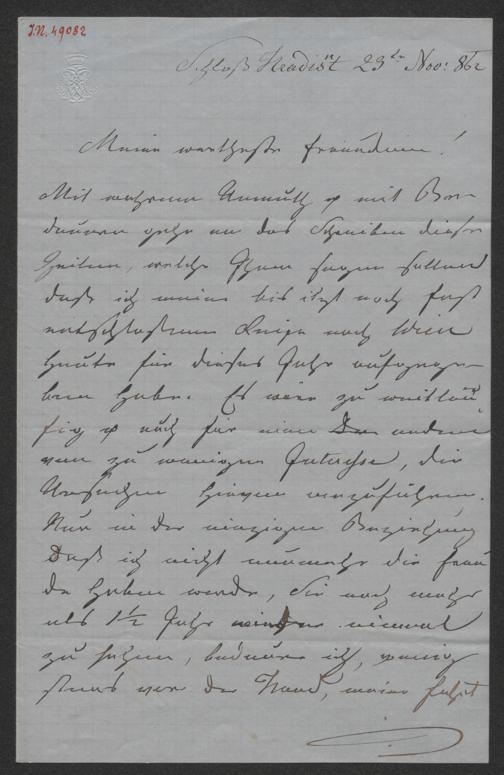 I.N. 49082
Schloß Hradist 23ten Nov: 862
Meine wertheste Freundin!
Mit wahrem Unmuth & mit Be-
dauern gehe an das Schreiben dieser
Zeilen, welche Ihnen sagen sollen
daß ich meine bis itzt noch fast
entschlossene Reise nach Wien
heute für dieses Jahr aufgege-
ben habe. Es wäre zu weitläu
fig & auch für einen andern
von zu wenigem Interesse, die
Ursachen hievon anzuführen.
Nur in der einzigen Beziehung
Daß ich nicht nunmehr die Freu
de haben werde, Sie nach mehr
als 1½ Jahr einmal
zu sehen, bedaure ich, wenig
stens vor der Hand, meine Fahrt